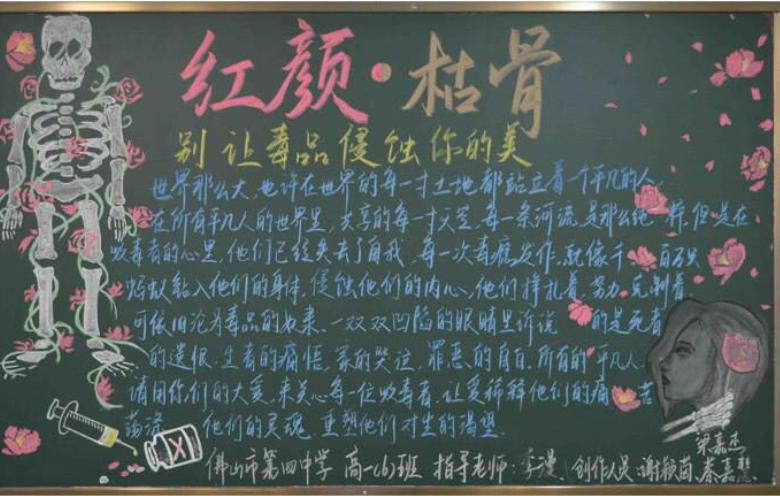 红颜·枯骨
别让毒品侵蚀你的美
世界那么大,也许在世界的每一寸土地都站立着一个平凡的人,
在所有平凡人的世界里,共享的每一寸天空,每一条河流,是那么纯 粹,但是在
吸毒者的心里,他们已经失去了自我,每一次毒瘾发作,就像千 百只
蚂蚁钻入他们的身体,侵蚀他们的内心,他们挣扎着,努力 克制着
可依旧沦为毒品的奴隶.一双双凹陷的眼睛里诉说 的是死者
的遗恨,生者的痛悟,家的哭泣,罪恶的自白.所有的 平凡人,
请用你们的大爱,来关心每一位吸毒者,让爱稀释他们的痛 苦
荡涤 他们的灵魂,重塑他们对生的渴望.
X
梁嘉杰
佛山市第四中学 高一(6)班 指导老师:李漫 创作人员 谢颖茵、秦嘉